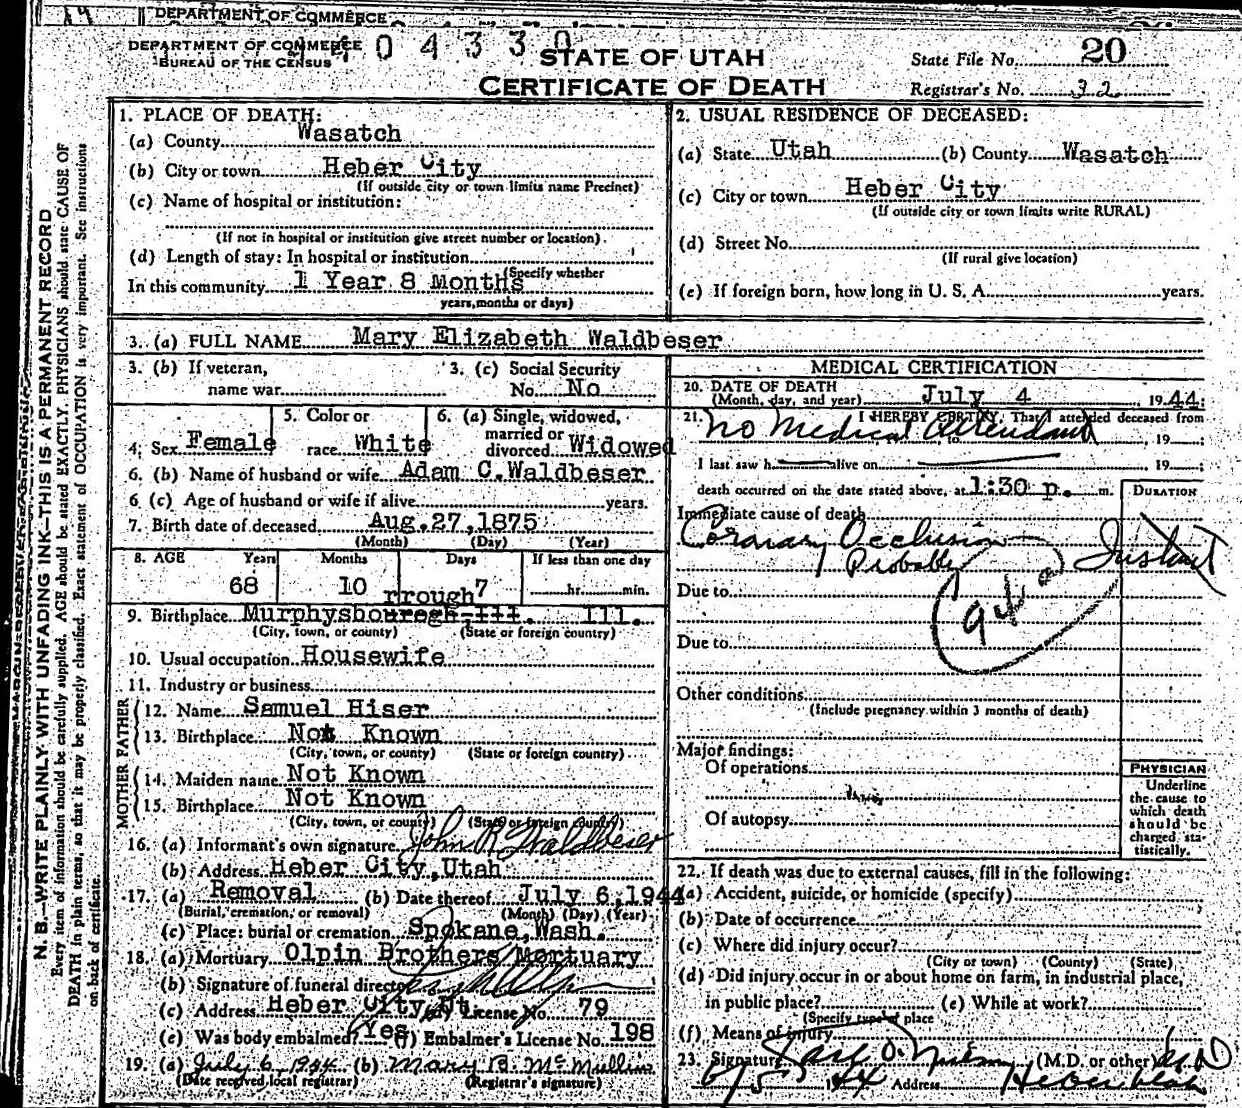 DEPARTMENT OF COMMERCE
DEPARTMENT OF COMMERCE
BUREAU OF THE CENSUS
0 4 3 3 0
STATE OF UTAH
CERTIFICATE OF DEATH
State File No. 20
Registrar's No. 32
N. B.—WRITE PLAINLY WITH UNFADING INK—THIS IS A PERMANENT RECORD
Every item of information should be carefully supplied. AGE should be stated EXACTLY. PHYSICIANS should state CAUSE OF
DEATH in plain terms, so that it may be properly classified. Exact statement of OCCUPATION is very important. See instructions
on back of certificate.
1. PLACE OF DEATH:
(a) County Wasatch
(b) City or town Heber City
(If outside city or town limits name Precinct)
(c) Name of hospital or institution:
(If not in hospital or institution give street number or location)
(d) Length of stay: In hospital or institution
(Specify whether
In this community 1 Year 8 Months
years, months or days)
2. USUAL RESIDENCE OF DECEASED:
(a) State Utah (b) County Wasatch
(c) City or town Heber City
(If outside city or town limits write RURAL)
(d) Street No.
(If rural give location)
(e) If foreign born, how long in U. S. A. years.
3. (a) FULL NAME Mary Elizabeth Waldbeser
3. (b) If veteran,
name war
3. (c) Social Security
No. No
4. Sex Female
5. Color or
race White
6. (a) Single, widowed,
married or
divorced Widowed
6. (b) Name of husband or wife Adam C. Waldbeser
6 (c) Age of husband or wife if alive years.
7. Birth date of deceased Aug. 27, 1875
(Month) (Day) (Year)
8. AGE Years Months Days If less than one day
68 10 7 hr. min.
rrough
9. Birthplace Murphysbouregh Ill. Ill.
(City, town, or county) (State or foreign country)
10. Usual occupation Housewife
11. Industry or business
FATHER
12. Name Samuel Hiser
13. Birthplace Not Known
(City, town, or county) (State or foreign country)
MOTHER
14. Maiden name Not Known
15. Birthplace Not Known
(City, town, or county) (State or foreign country)
16. (a) Informant's own signature John R Waldbeser
(b) Address Heber City, Utah
17. (a) Removal (b) Date thereof July 6, 1944
(Burial, cremation, or removal) (Month) (Day) (Year)
(c) Place: burial or cremation Spokane, Wash.
18. (a) Mortuary Olpin Brothers Mortuary
(b) Signature of funeral director
(c) Address Heber City, Ut (d) License No. 79
(e) Was body embalmed? Yes (f) Embalmer's License No. 198
19. (a) July 6, 1944 (b) Mary B. McMullin
(Date received local registrar) (Registrar's signature)
MEDICAL CERTIFICATION
20. DATE OF DEATH
(Month, day, and year) July 4 1944
21. I HEREBY CERTIFY, That I attended deceased from
No Medical Attendant
to , 19
I last saw h alive on 19
death occurred on the date stated above, at 1:30 p. m.
DURATION
Immediate cause of death
Coronary Occlusion Instant
Probable
94a
Due to
Due to
Other conditions
(Include pregnancy within 3 months of death)
Major findings:
Of operations
Of autopsy
PHYSICIAN
Underline
the cause to
which death
should be
charged sta-
tistically.
22. If death was due to external causes, fill in the following:
(a) Accident, suicide, or homicide (specify)
(b) Date of occurrence
(c) Where did injury occur?
(City or town) (County) (State)
(d) Did injury occur in or about home on farm, in industrial place,
in public place? (e) While at work?
(Specify type of place
(f) Means of injury
23. Signature (M.D. or other) M D
44 Address Heber Utah